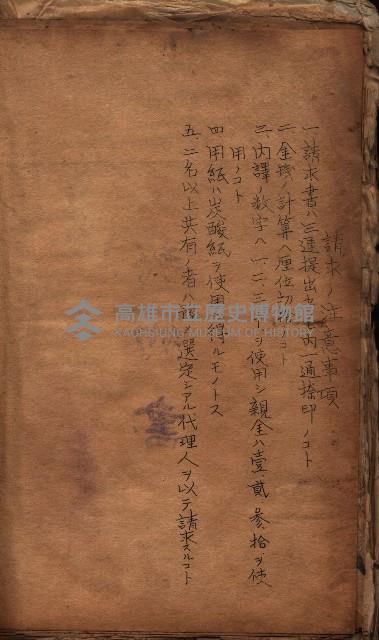 請求ノ注意事項
一、請求書ハ三通提出 内一通捺印ノコト
二、金銭ノ計算ハ厘位切捨 コト
三、内譯ノ数字ハ一、二、三 ヲ使用シ親金ハ壹貳参拾ヲ使
用ノコト
四、用紙ハ炭酸紙ヲ使用 得ルモノトス
五、二名以上共有ノ者ハ 選定シアル代理人ヲ以テ請求スルコト
高雄市立歷史博物館
KAOHSIUNG MUSEUM OF HISTORY